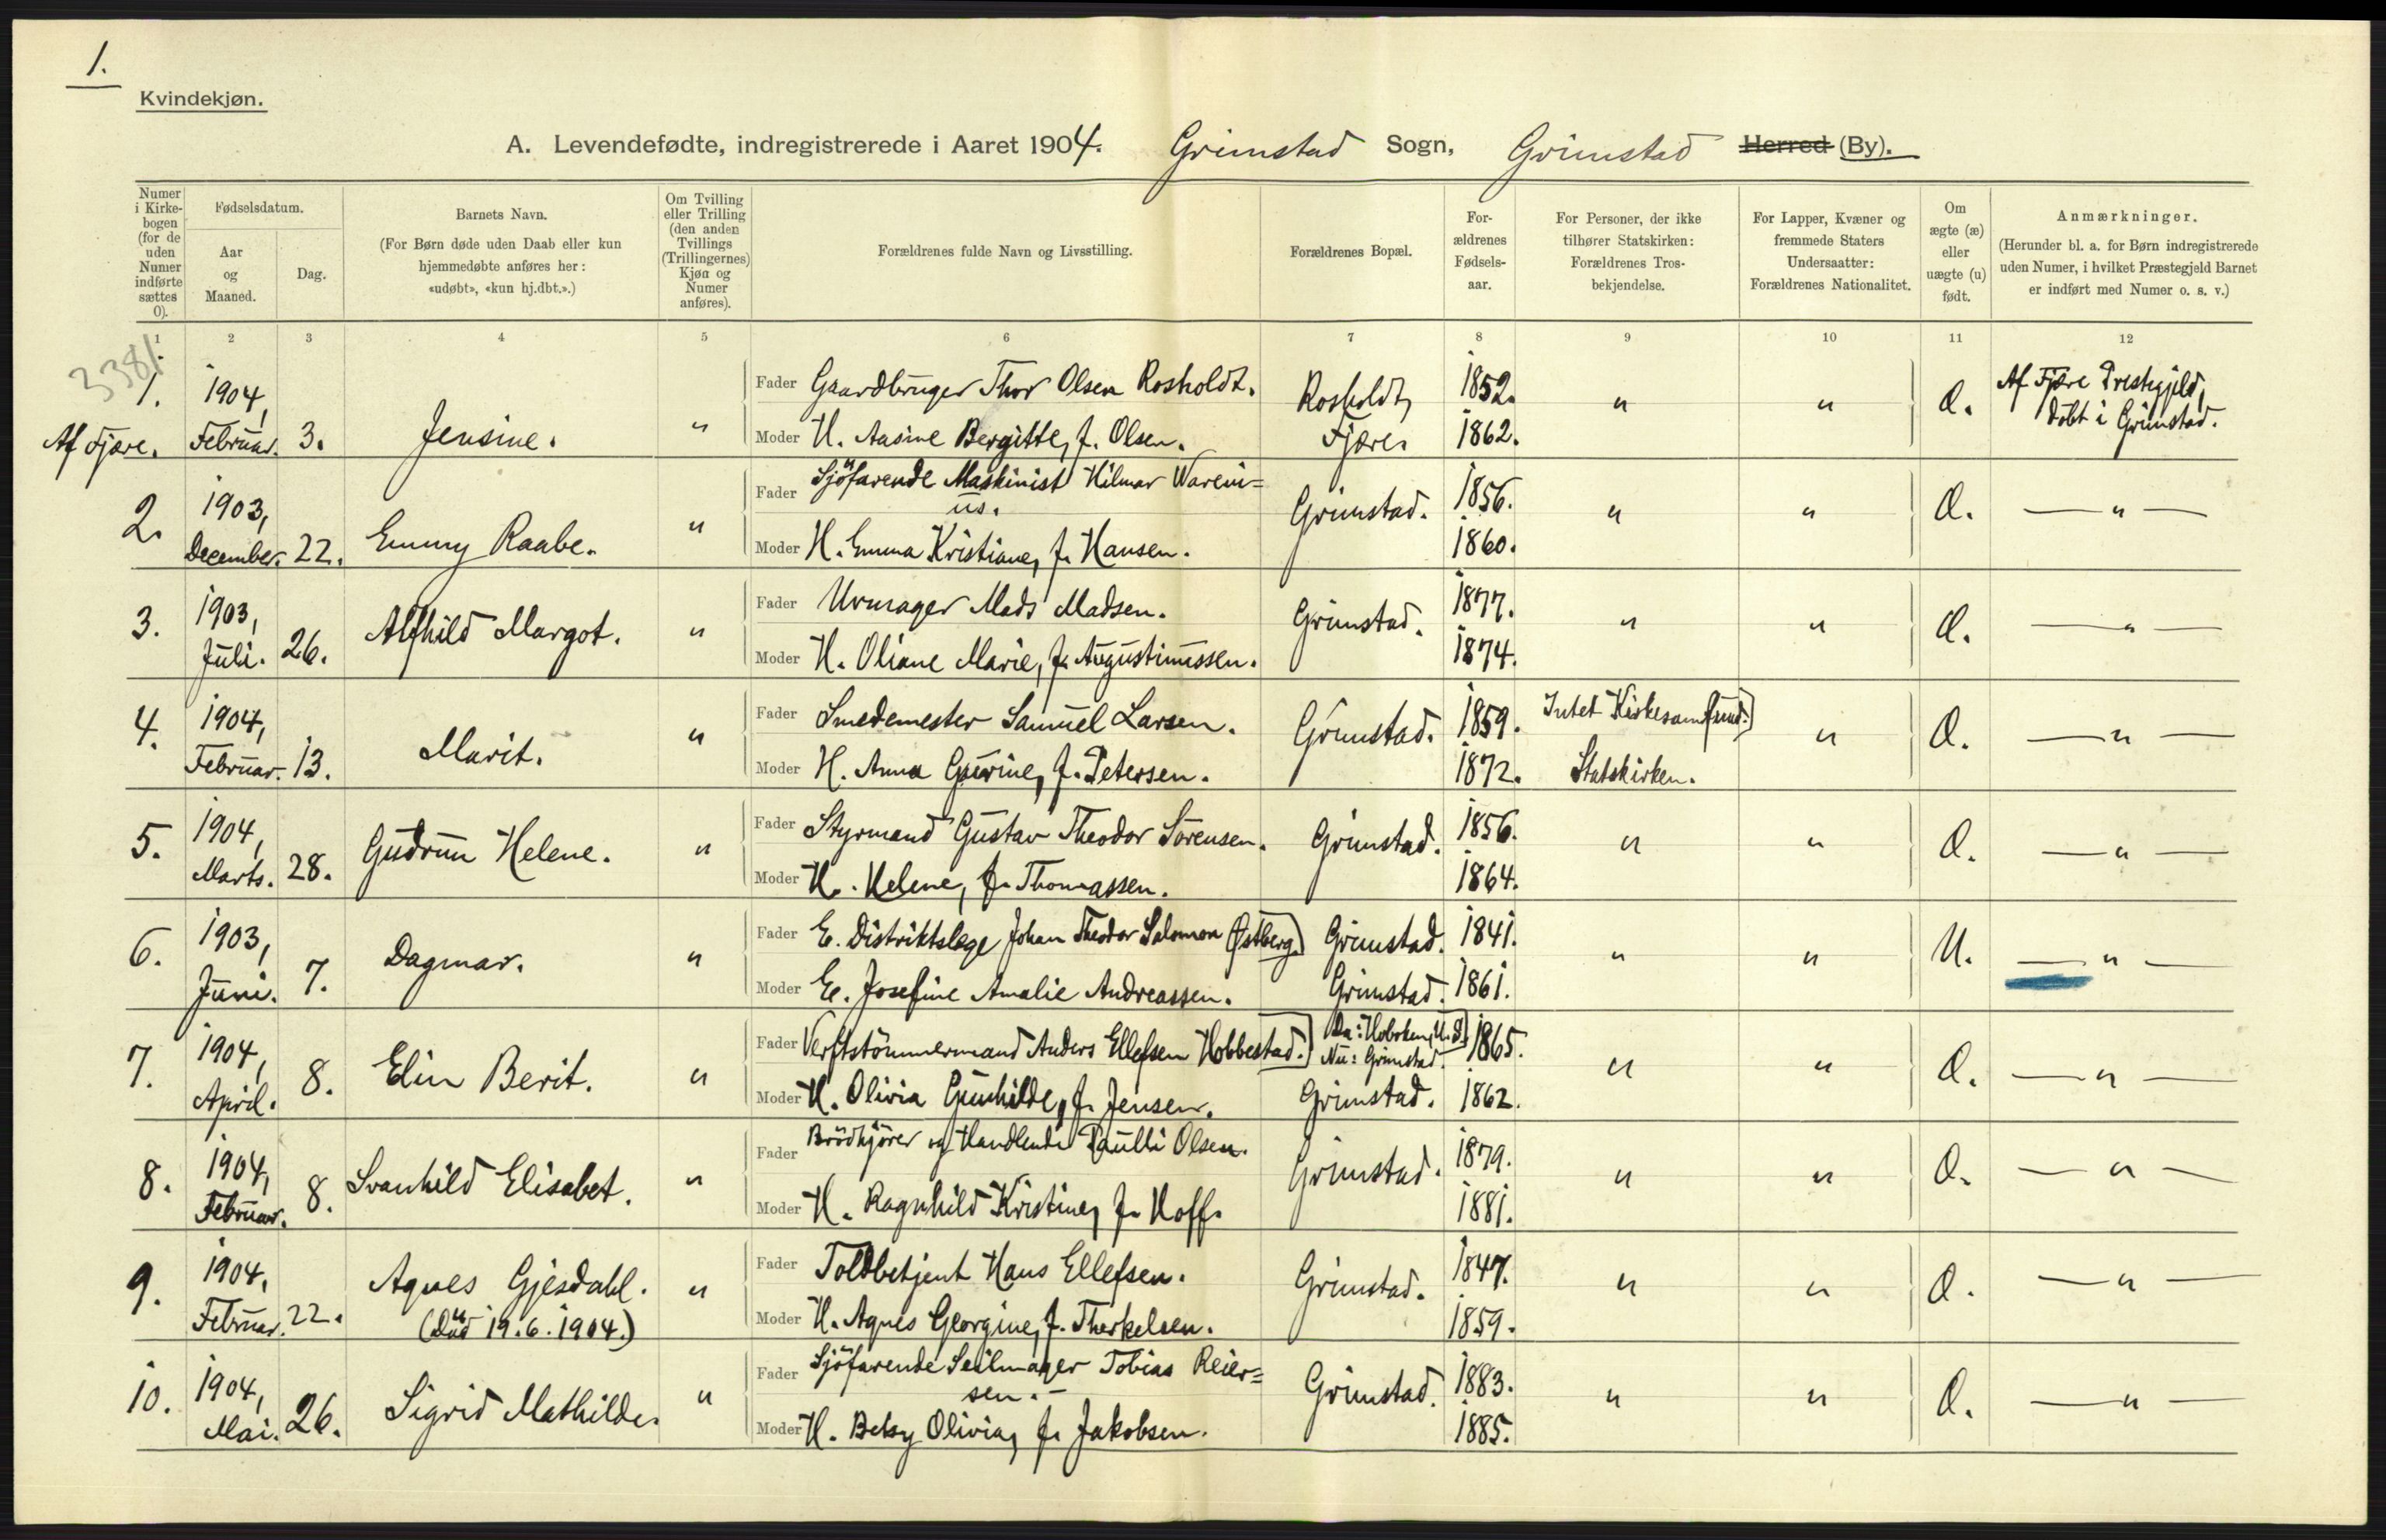 1.
Kvindekjøn.
A. Levendefødte, indregistrerede i Aaret 1904. Grimstad Sogn, Grimstad Herred (By).
Numer i Kirke-bogen (for de uden Numer indførte sættes 0).
Fødselsdatum.
Aar og Maaned.
Dag.
Barnets Navn.
(For Børn døde uden Daab eller kun hjemmedøbte anføres her: «udøbt», «kun hj.dbt.».)
Om Tvilling eller Trilling (den anden Tvillings (Trillingernes) Kjøn og Numer anføres).
Forældrenes fulde Navn og Livsstilling.
Forældrenes Bopæl.
For-ældrenes Fødsels-aar.
For Personer, der ikke tilhører Statskirken: Forældrenes Tros-bekjendelse.
For Lapper, Kvæner og fremmede Staters Undersaatter: Forældrenes Nationalitet.
Om ægte (æ) eller uægte (u) født.
Anmærkninger.
(Herunder bl. a. for Børn indregistrerede uden Numer, i hvilket Præstegjeld Barnet er indført med Numer o. s. v.)
1 2 3 4 5 6 7 8 9 10 11 12
3381
1. Af Fjære. 1904, Februar. 3. Jensine. "
Fader Gaardbruger Thor Olsen Rosholdt. Rosholdt, 1852. " " Æ. Af Fjære Prestegjeld,
Moder H. Aasine Bergitte, f. Olsen. Fjære. 1862. döbt i Grimstad.
2. 1903, December. 22. Emmy Raabe. "
Fader Sjöfarende Maskinist Hilmar Wareni=
us. Grimstad. 1856. " " Æ. — " —
Moder H. Emma Kristiane, f. Hansen. 1860.
3. 1903, Juli. 26. Alfhild Margot. "
Fader Urmager Mads Madsen. Grimstad. 1877. " " Æ. — " —
Moder H. Oliane Marie, f. Augustinussen. 1874.
4. 1904, Februar. 13. Marit. "
Fader Smedemester Samuel Larsen. Grimstad. 1859. Intet Kirkesamfund. " Æ. — " —
Moder H. Anna Gurine, f. Petersen. 1872. Statskirken.
5. 1904, Marts. 28. Gudrun Helene. "
Fader Styrmand Gustav Theodor Sörensen. Grimstad. 1856. " " Æ. — " —
Moder H. Helene, f. Thomassen. 1864.
6. 1903, Juni. 7. Dagmar. "
Fader E. Distriktslæge Johan Theodor Salomon Østberg. Grimstad. 1841. " " U. — " —
Moder E. Josefine Amalie Andreassen. Grimstad. 1861.
7. 1904, April. 8. Elin Berit. "
Fader Verftstömmermand Anders Ellefsen Hobbestad. Da: Hoboken, U.S. Nu: Grimstad. 1865. " " Æ. — " —
Moder H. Olivia Gunhilde, f. Jensen. Grimstad. 1862.
8. 1904, Februar. 8. Svanhild Elisabet. "
Fader Brödkjörer og Handlende Paulli Olsen. Grimstad. 1879. " " Æ. — " —
Moder H. Ragnhild Kristine, f. Hoff. 1881.
9. 1904, Februar. 22. Agnes Gjesdahl. (Död 19.6.1904.) "
Fader Toldbetjent Hans Ellefsen. Grimstad. 1847. " " Æ. — " —
Moder H. Agnes Georgine, f. Therkelsen. 1859.
10. 1904, Mai. 26. Sigrid Mathilde. "
Fader Sjöfarende Seilmager Tobias Reier=
sen. Grimstad. 1883. " " Æ. — " —
Moder H. Betsy Olivia, f. Jakobsen. 1885.